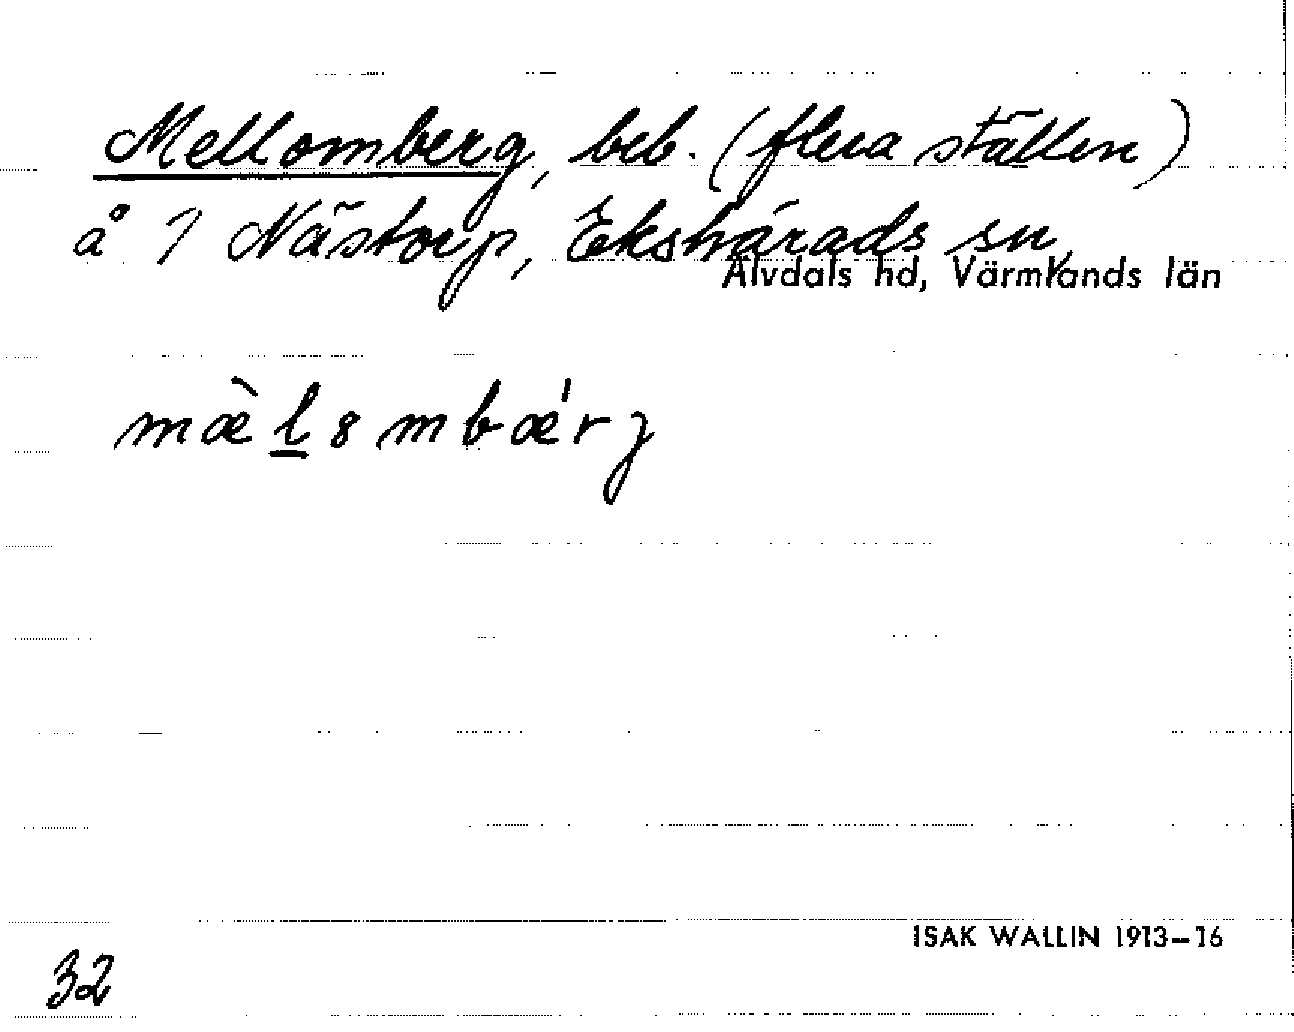 Mellomberg, beb. (flera ställen)
å 1 Nästorp, Ekshärads sn,
Älvdals hd, Värmlands län
mæ̀l̲8mbǽrj
ISAK WALLIN 1913–16
32